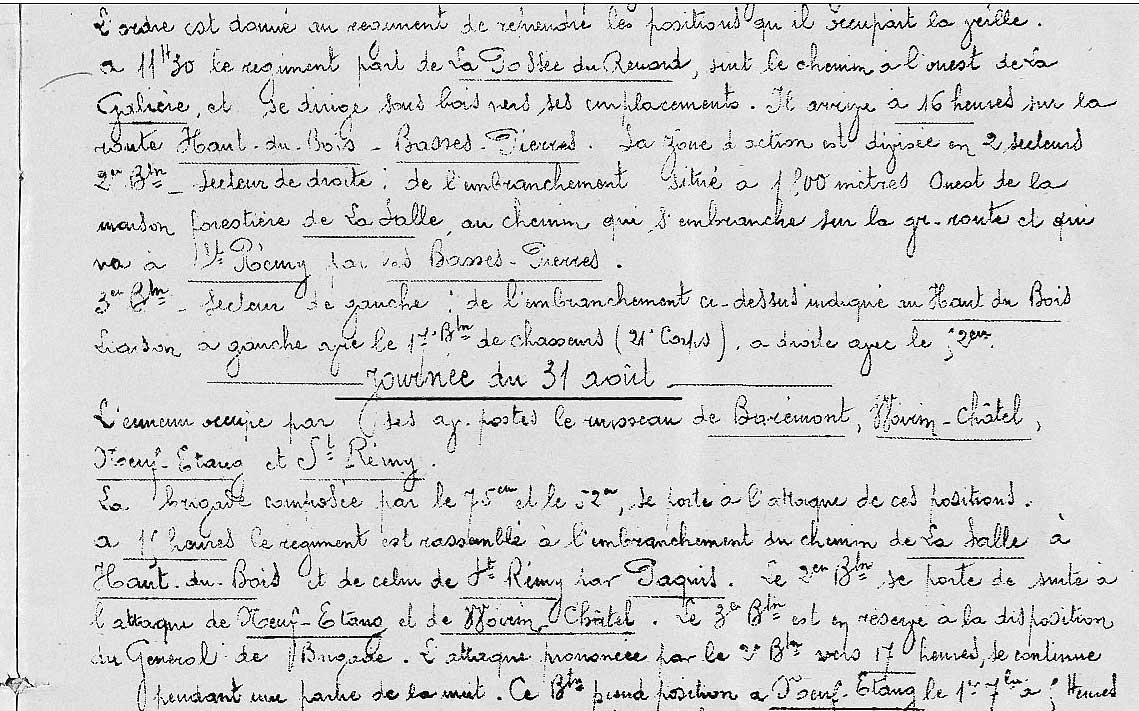 L'ordre est donné au régiment de reprendre les positions qu'il occupait la veille.
a 11H30 le régiment part de La Fossée du Renard, suit le chemin à l'ouest de La
Galière, et se dirige sous bois vers ses emplacements. Il arrive à 16 heures sur la
route Haut-du-Bois - Basses-Pierres. La zône d'action est divisée en 2 secteurs
2em Btn - Secteur de droite : de l'embranchement situé a mètres Ouest de la
maison forestière de La Salle, au chemin qui s'embranche sur la gr. route et qui
va a St Rémy par les Basses-Pierres.
3em Btn - Secteur de gauche : de l'embranchement ci-dessus indiqué au Haut du Bois
Liaison à gauche avec le 17e Btn de chasseurs (21e Corps), a droite avec le 52em.
Journée du 31 août
L'ennemi occupe par ses av. postes le ruisseau de Barémont, Woirin-Châtel,
Neuf-Etang et St Rémy.
La brigade composée par le 75em et le 52em, se porte à l'attaque de ces positions.
a heures le régiment est rassemblé à l'embranchement du chemin de La Salle à
Haut-du-Bois et de celui de St Rémy par Paquis. Le 2em Btn se porte de suite à
l'attaque de Neuf-Etang et de Woirin-Châtel. Le 3e Btn est en réserve à la disposition
du Général de Brigade. L'attaque prononcée par le 2e Btn vers 17 heures, se continue
pendant une partie de la nuit. Ce Btn prend position a Neuf-Etang le 1er 7bre a heures